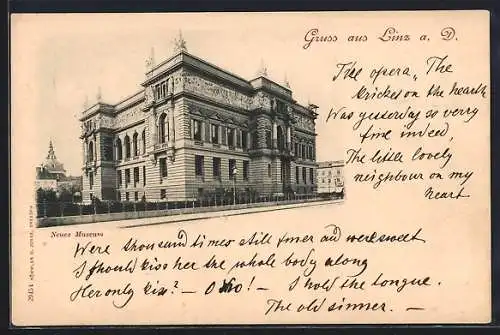 Gruss aus Linz a. D.
The opera "The
Cricket on the hearth
Was yesterday so verry
fine indeed,
The little lovely
neighbour on my
heart
Neues Museum
Were thousand times still finer and sweet
I should kiss her the whole body along
Her only kiss? – Oho! – I hold the tongue.
The old sinner. –
29154